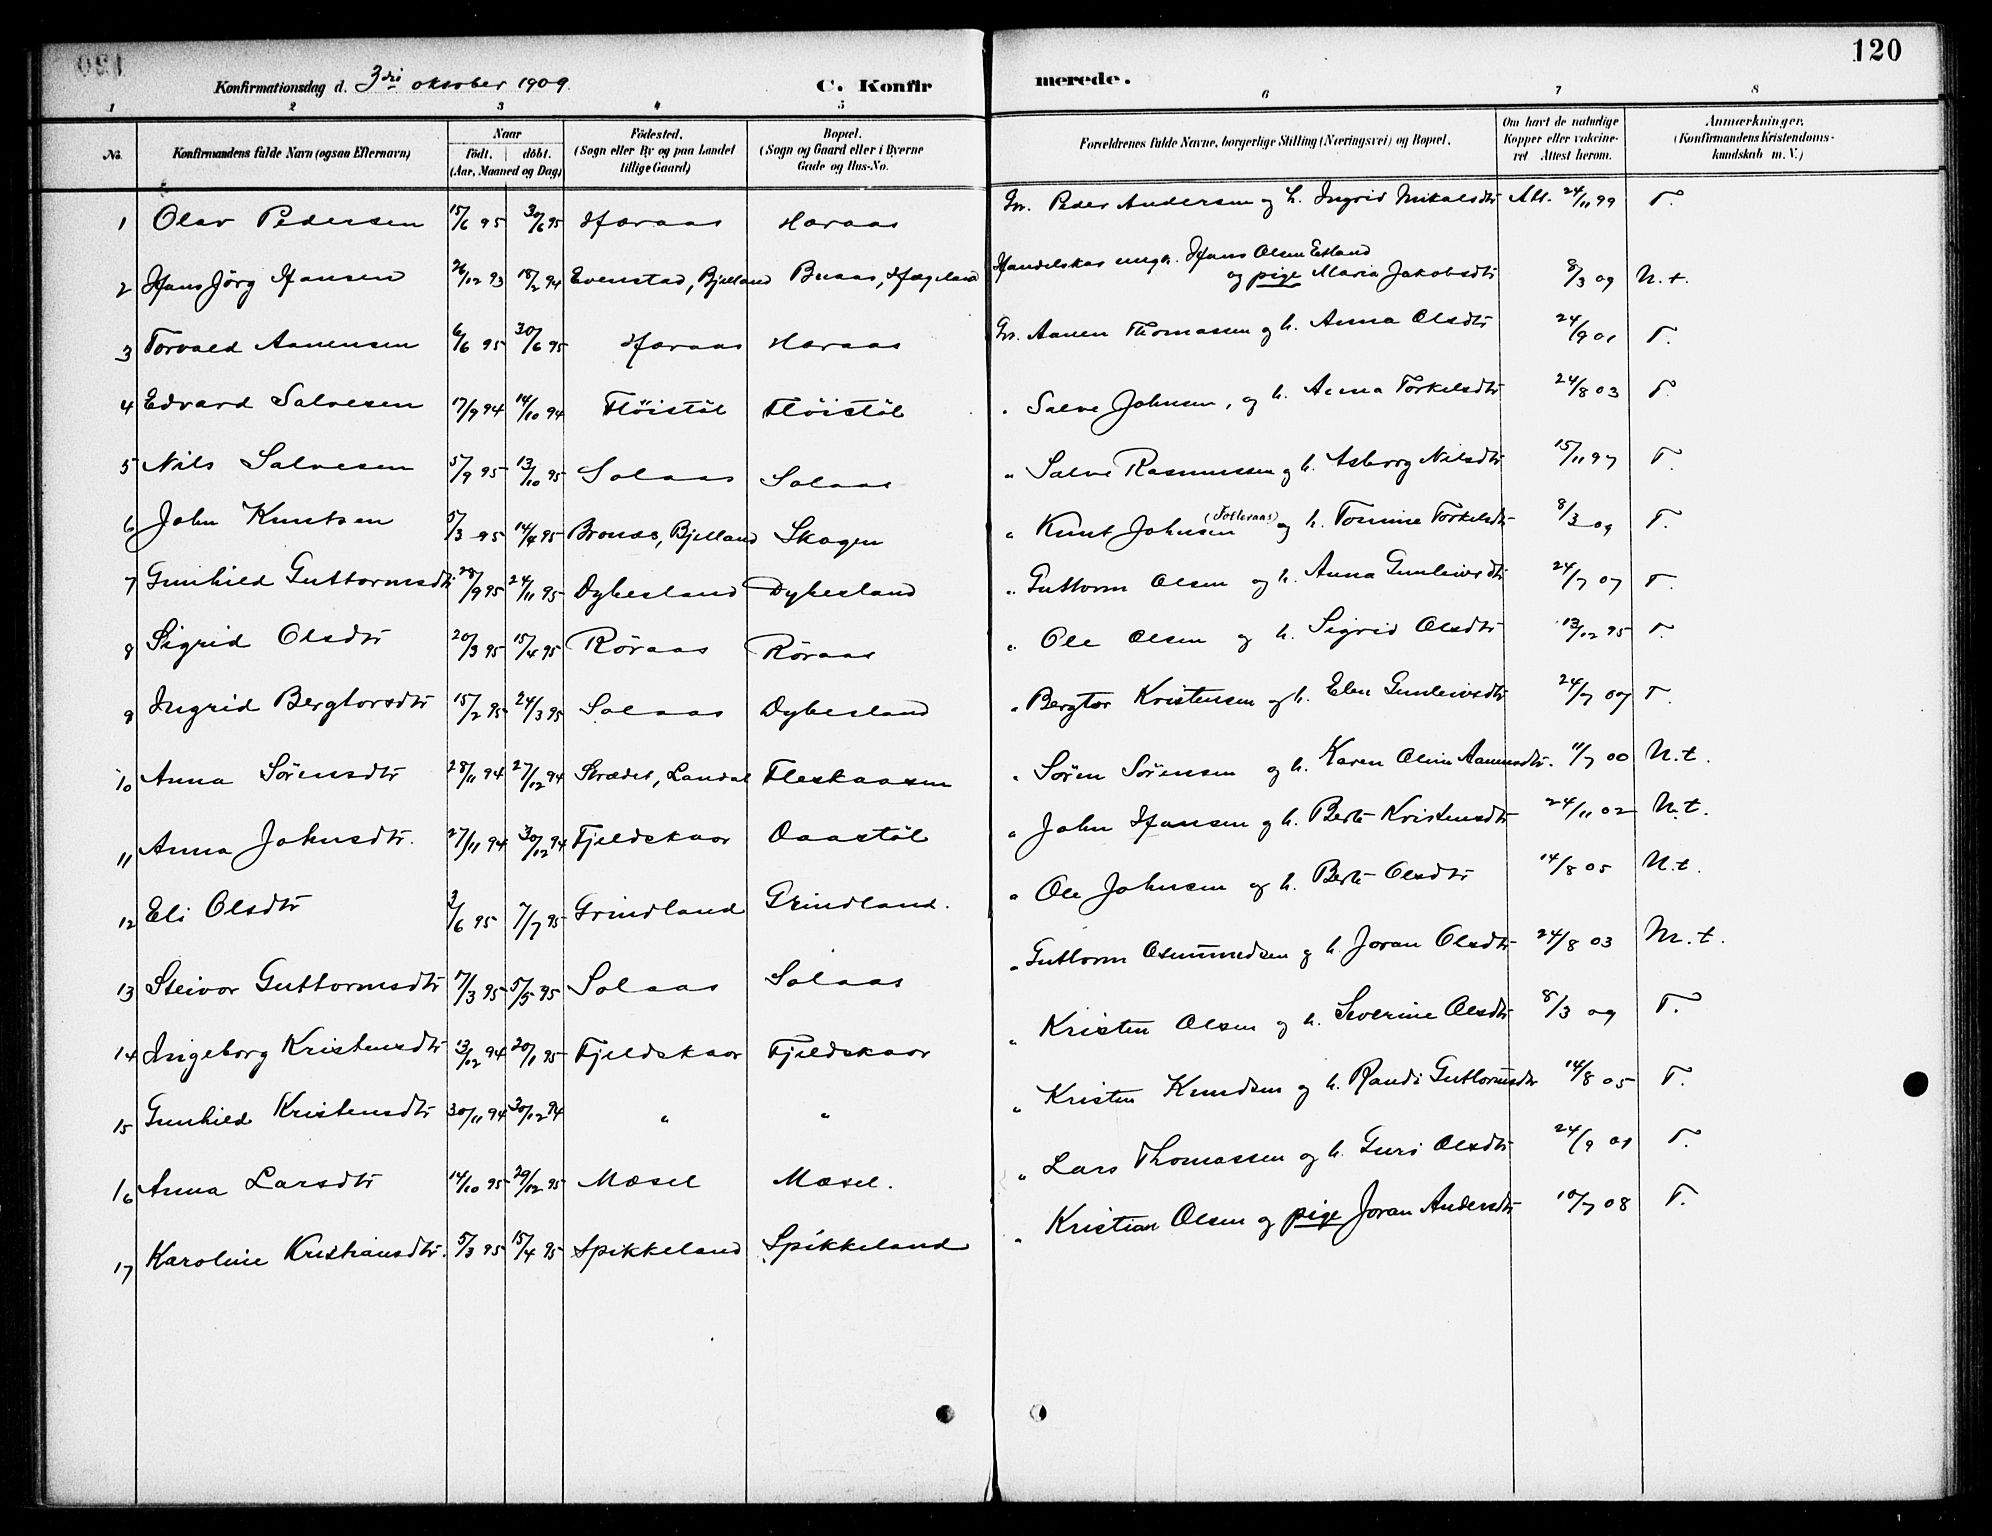 120
Konfirmationsdag d. 3di oktober 1909. C. Konfirmerede.
1 2 3 4 5 6 7 8
No. Konfirmandens fulde Navn (ogsaa Efternavn) Naar Födt. döbt. (Aar, Maaned og Dag) Födested. (Sogn eller By og paa Landet tillige Gaard) Bopæl. (Sogn og Gaard eller i Byerne Gade og Hus-No. Forældrenes fulde Navne, borgerlige Stilling (Næringsvei) og Bopæl. Om havt de naturlige Kopper eller vakcineret Attest herom. Anmærkninger. (Konfirmandens Kristendomskundskab m. V.)
1 Olav Pedersen 15/6 95 30/6 95 Høraas Høraas Gr. Peder Andersen og h. Ingrid Mikalsdtr Att. 24/11 99 T.
2 Hans Jörg Hansen 26/12 93 18/2 94 Evenstad, Bjelland Buaas, Hægeland Handelskar ungk. Hans Olsen Eeland og pige Maria Jakobsdtr 8/3 09 N.t.
3 Torvald Aanensen 6/6 95 30/6 95 Høraas Høraas Gr. Aanen Thomassen og h. Anna Olsdtr 24/9 01 T.
4 Edvard Salvesen 17/9 94 14/10 94 Fløistøl Fløistøl " Salve Johnsen, og h. Anna Torkelsdtr 24/8 03 T.
5 Nils Salvesen 5/9 95 13/10 95 Solaas Solaas " Salve Rasmussen og h. Asborg Nilsdtr 15/11 97 T.
6 John Knutsen 5/3 95 14/4 95 Bronas, Bjelland Skogen " Knut Johnsen og h. Tomine Torkelsdtr 8/3 09 T.
7 Gunhild Guttormsdtr 28/9 95 24/11 95 Dybesland Dybesland " Guttorm Olsen og h. Anna Gunleivsdtr 24/7 07 T.
8 Sigrid Olsdtr 20/3 95 15/4 95 Røraas Røraas " Ole Olsen og h. Sigrid Olsdtr 13/12 95 T.
9 Ingrid Bergtorsdtr 15/2 95 24/3 95 Solaas Dybesland " Bergtor Kristensen og h. Elen Gunleivsdtr 24/7 07 T.
10 Anna Sørensdtr 28/11 94 27/12 94 Strædet, Landal Fleskaasen " Søren Sørensen og h. Karen Oline Aanensdtr. 11/7 00 N.t.
11 Anna Johnsdtr. 27/11 94 30/12 94 Fjeldskaar Oaastøl " John Hansen og h. Berte Kristensdtr 24/11 02 N.t.
12 Eli Olsdtr 3/6 95 7/7 95 Grindland Grindland. " Ole Johnsen og h. Berte Olsdtr 14/8 05 N.t.
13 Steivor Guttormsdtr 7/3 95 5/5 95 Solaas Solaas " Guttorm Osmundsen og h. Joran Olsdtr 24/8 03 M.t.
14 Ingeborg Kristensdtr 13/12 94 20/1 95 Fjeldskaar Fjeldskaar " Kristen Olsen og h. Severine Olsdtr 8/3 09 T.
15 Gunhild Kristensdtr 30/11 94 30/12 94 " " " Kristen Knudsen og h. Randi Guttormsdtr 14/8 05 T.
16 Anna Larsdtr 14/10 95 29/12 95 Mæsel Mæsel. " Lars Thomassen og h. Guri Olsdtr 24/9 01 T.
17 Karoline Kristiansdtr. 5/3 95 15/4 95 Spikkeland Spikkeland " Kristian Olsen og pige Joran Andersdtr 10/7 08 T.